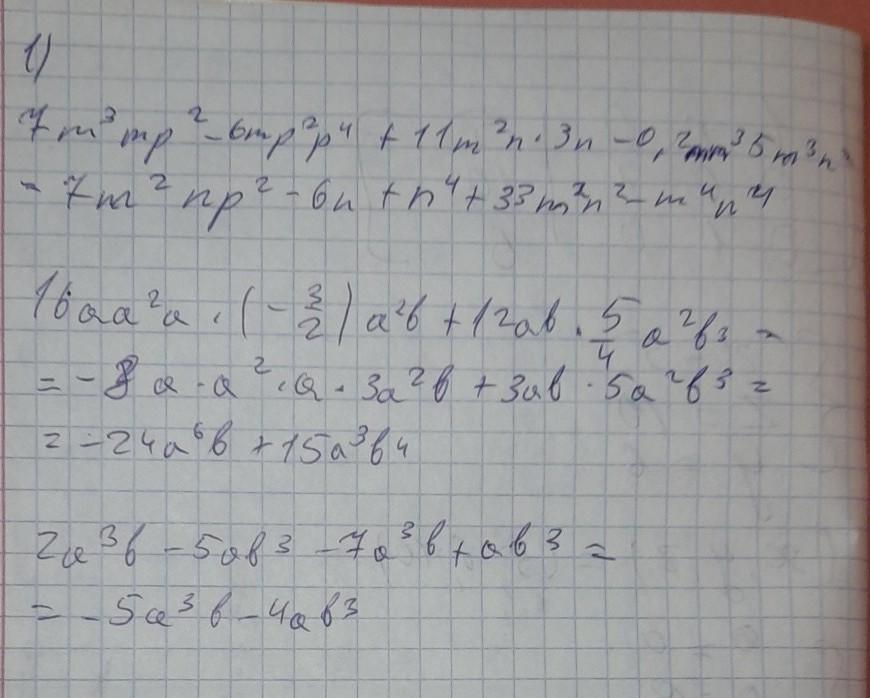 1)
7m³mp² - 6mp²p⁴ + 11m²n · 3n - 0,2mm³5m³n
= 7m²np² - 6n + n⁴ + 33m²n² - m⁴n⁴
16aa²a · (-3/2) a²b + 12ab · 5/4 a²b³ =
= -8a · a² · a · 3a²b + 3ab · 5a²b³ =
= -24a⁶b + 15a³b⁴
2a³b - 5ab³ - 7a³b + ab³ =
= -5a³b - 4ab³